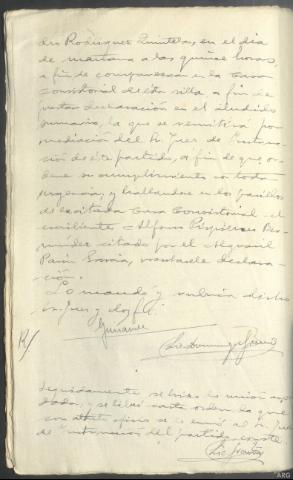 dro Rodriguez Quintela, en el dia
de mañana a las quince horas,
a fin de comparecer en la Casa
Consistorial de esta villa a fin de
prestar declaración en el aludido
sumario, la que se remitirá por
mediación del Sr. Juez de Instruc-
ción de este partido, a fin de que or-
dene su cumplimiento con toda
urgencia, y hallandose en los pasillos
de la citada Casa Consistorial el
escribiente Alfonso
citado por el Alguacil
declara-
ción.
Lo mandó y rubrica dicho
Sr. Juez y doy fe.
R/
Seguidamente, se hizo la unión acor-
dada, y se libró carta orden la que
con atento oficio se le envió al Sr. Juez
de Instrucción del partido, doy fe.